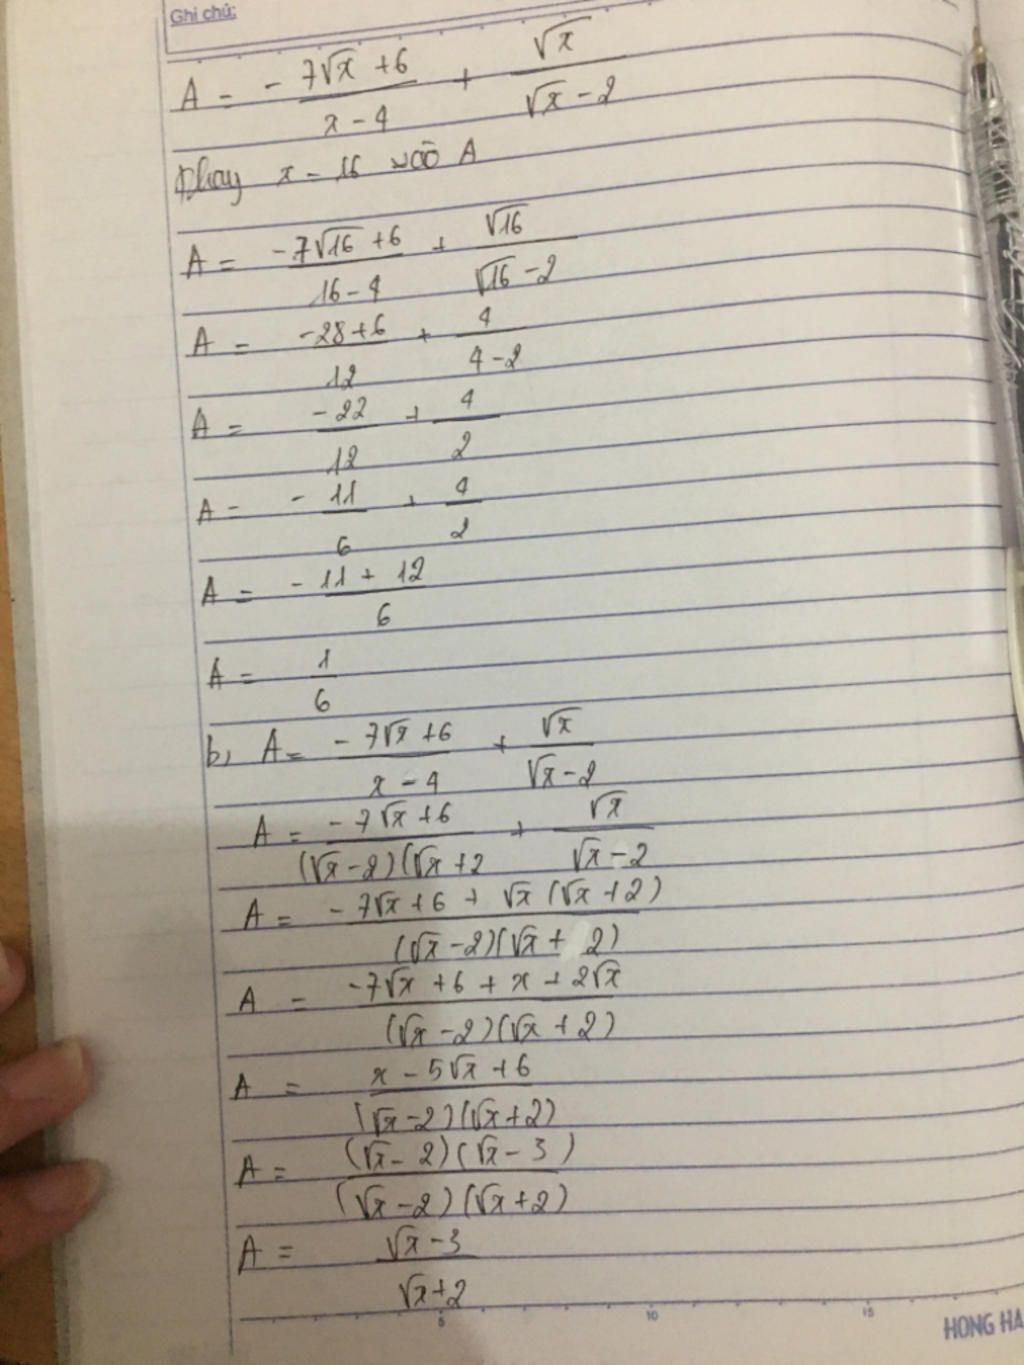 Ghi chú:
A = - 7√x + 6 / x - 4 + √x / √x - 2
Thay x = 16 vào A
A = -7√16 + 6 / 16 - 4 + √16 / √16 - 2
A = -28 + 6 / 12 + 4 / 4 - 2
A = -22 / 12 + 4 / 2
A = - 11 / 6 + 4 / 2
A = - 11 + 12 / 6
A = 1 / 6
b, A = - 7√x + 6 / x - 4 + √x / √x - 2
A = - 7√x + 6 / (√x - 2)(√x + 2 + √x / √x - 2
A = - 7√x + 6 + √x (√x + 2) / (√x - 2)(√x + 2)
A = -7√x + 6 + x + 2√x / (√x - 2)(√x + 2)
A = x - 5√x + 6 / (√x - 2)(√x + 2)
A = (√x - 2)(√x - 3) / (√x - 2)(√x + 2)
A = √x - 3 / √x + 2
5 10 15
HONG HA